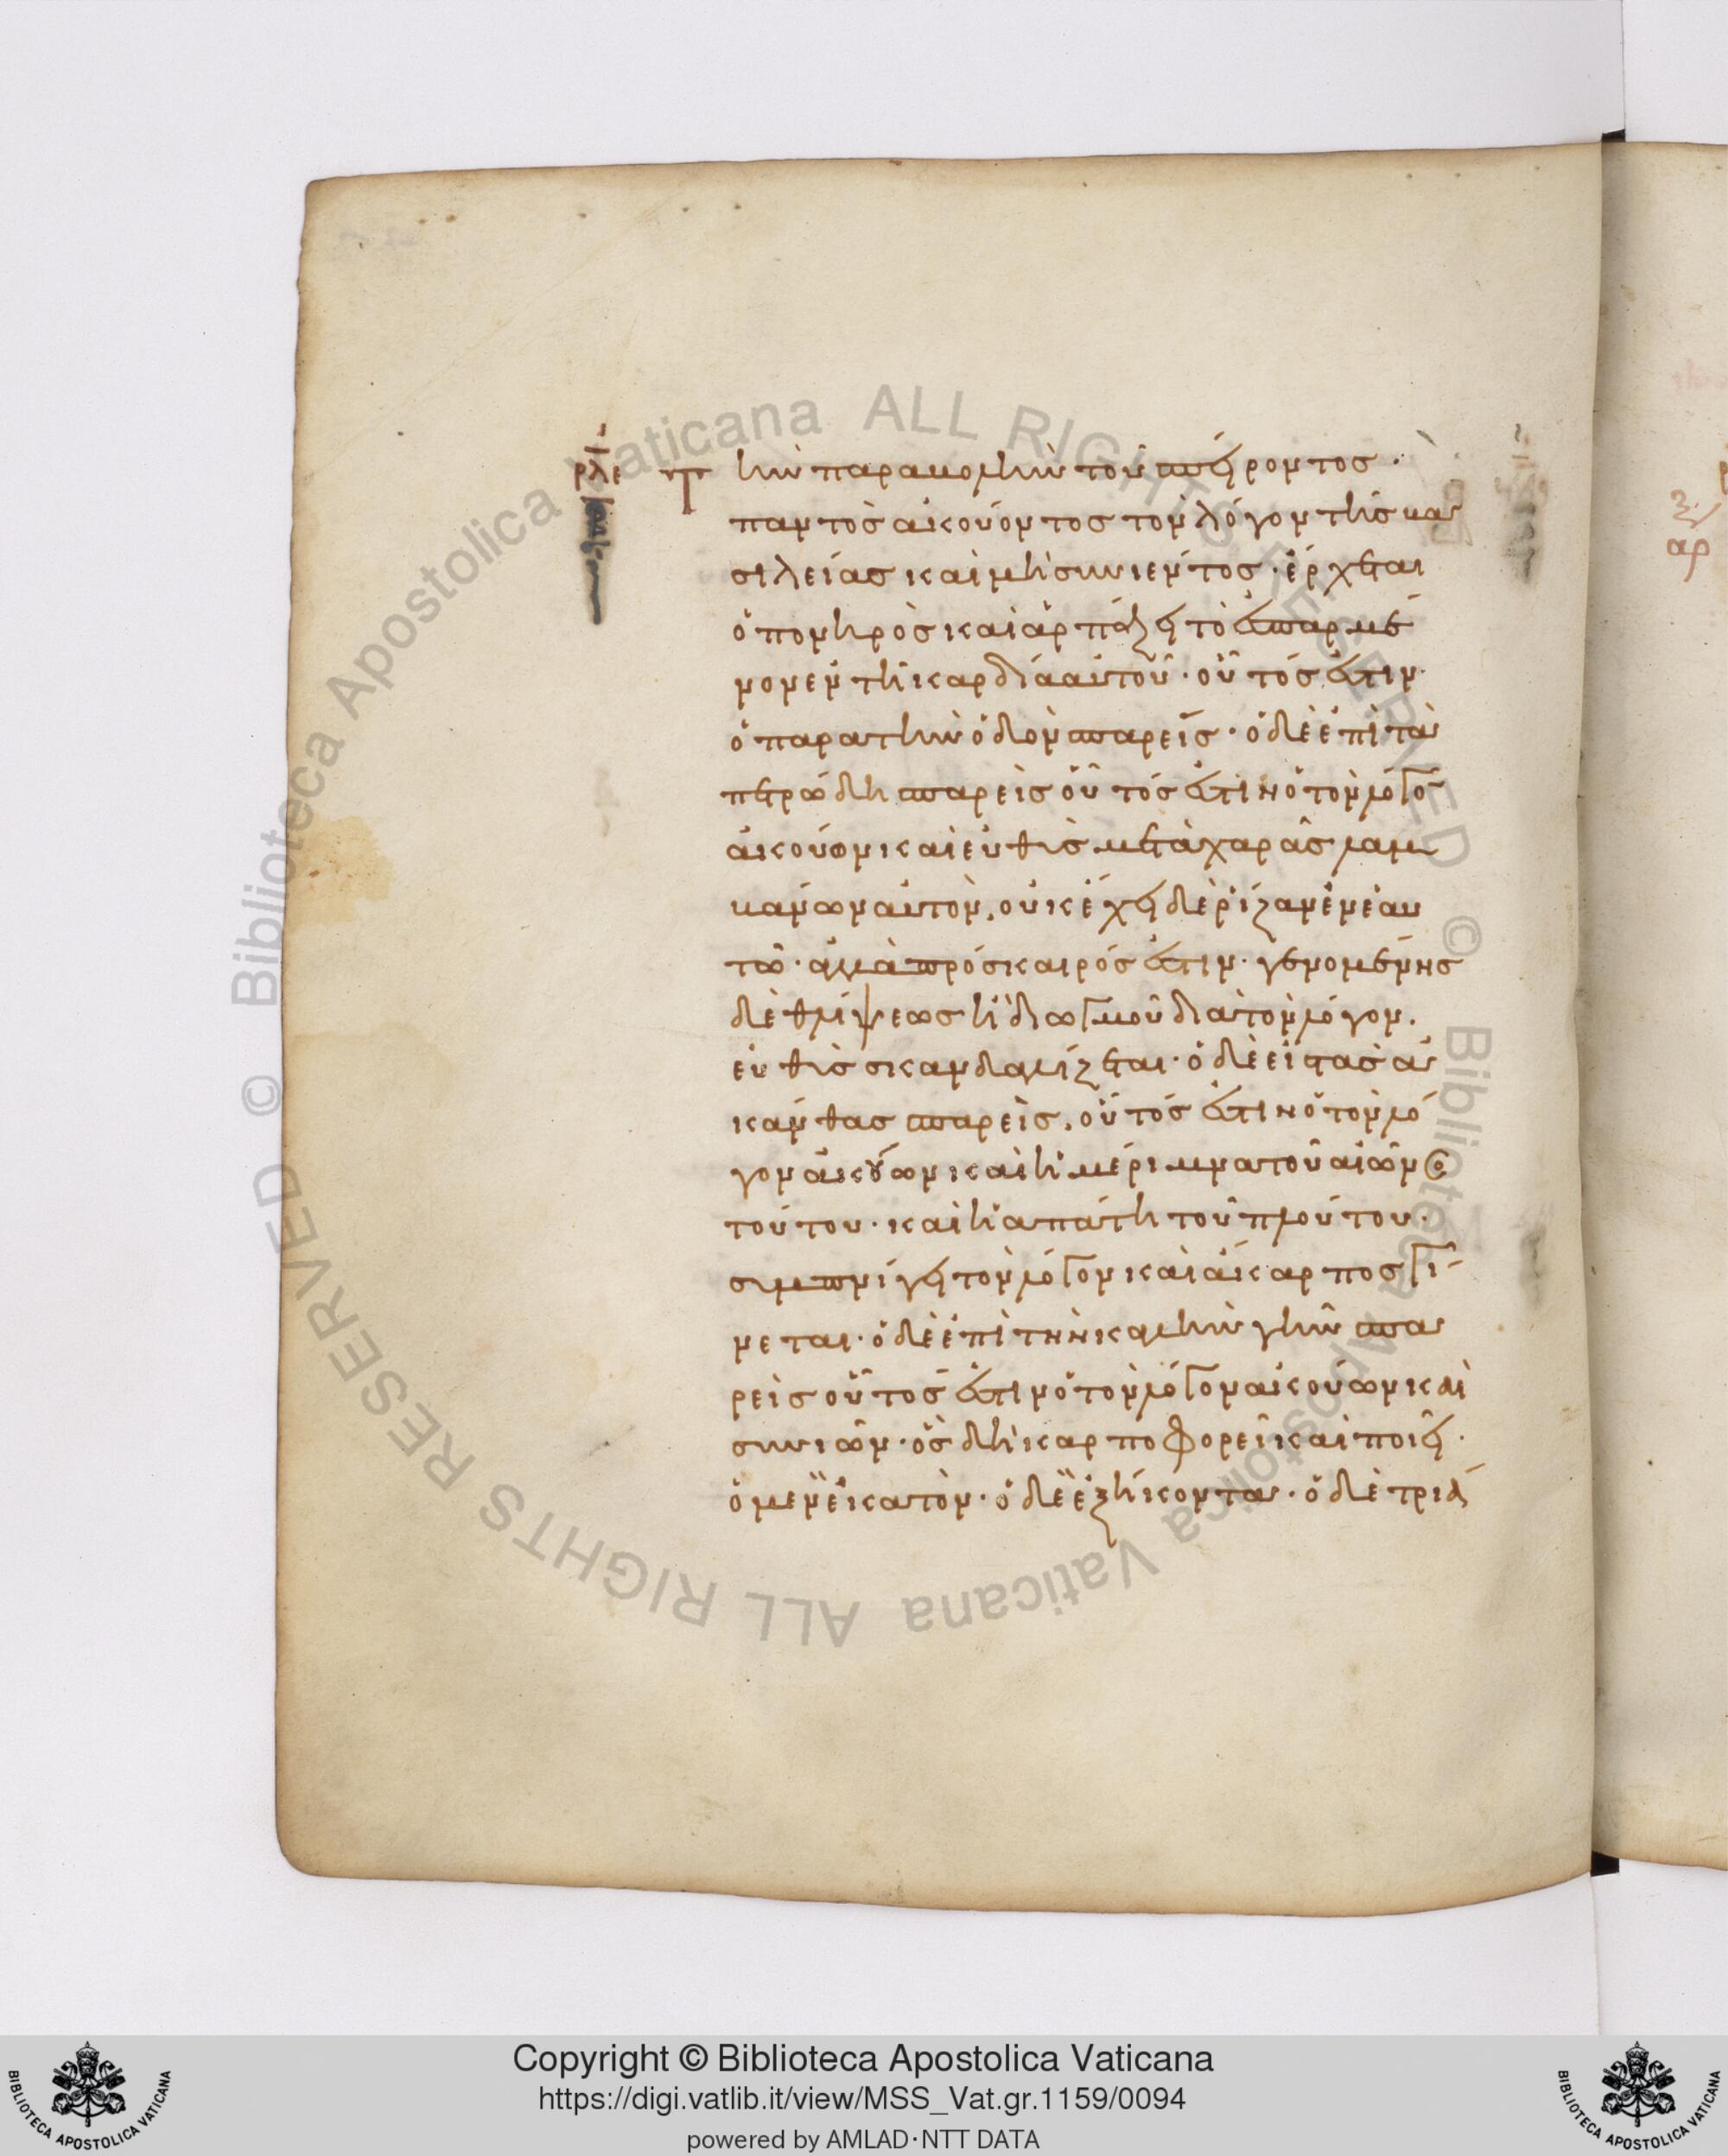 ρλε Τὴν παραβολὴν τοῦ σπείροντος·
παντὸς ἀκούοντος τὸν λόγον τῆς βα
σιλείας καὶ μὴ συνιέντος· ἔρχεται
ὁ πονηρὸς καὶ ἁρπάζει τὸ ἐσπαρμέ
νον ἐν τῆ καρδία αὐτοῦ· οὗτός ἐστιν
ὁ παρα τὴν ὁδὸν σπαρείς· ὁ δὲ ἐπὶ τὰ
πετρώδη σπαρεὶς οὗτός ἐστιν ὁ τὸν λόγο
ἀκούων καὶ εὐθὺς μετὰ χαρᾶς λαμ
βάνων αὐτόν, οὐκ ἔχει δὲ ῥίζαν ἐν ἑαυ
τῶ· ἀλλὰ πρόσκαιρός ἐστιν· γενομένης
δὲ θλίψεως ἢ διωγμοῦ διὰ τὸν λόγον.
εὐθὺς σκανδαλίζεται· ὁ δὲ εἰς τὰς ἀ
κάνθας σπαρεὶς, οὗτός ἐστιν ὁ τὸν λό
γον ἀκούων καὶ ἡ μέριμνα τοῦ αἰῶνος
τούτου· καὶ ἡ ἀπάτη τοῦ πλούτου·
συμπνίγει τὸν λόγον καὶ ἄκαρπος γί
νεται· ὁ δὲ ἐπὶ τὴν καλὴν γῆν σπα
ρεὶς οὗτός ἐστιν ὁ τὸν λόγον ἀκούων καὶ
συνιῶν· ὃς δὴ καρποφορεῖ καὶ ποιεῖ·
ὁ μὲν ἑκατὸν· ὁ δὲ ἑξήκοντα· ὁ δὲ τριά
ALL RIGHTS RESERVED © Biblioteca Apostolica Vaticana
ALL RIGHTS RESERVED © Biblioteca Apostolica Vaticana
Copyright © Biblioteca Apostolica Vaticana
https://digi.vatlib.it/view/MSS_Vat.gr.1159/0094
powered by AMLAD·NTT DATA
BIBLIOTECA APOSTOLICA VATICANA
BIBLIOTECA APOSTOLICA VATICANA